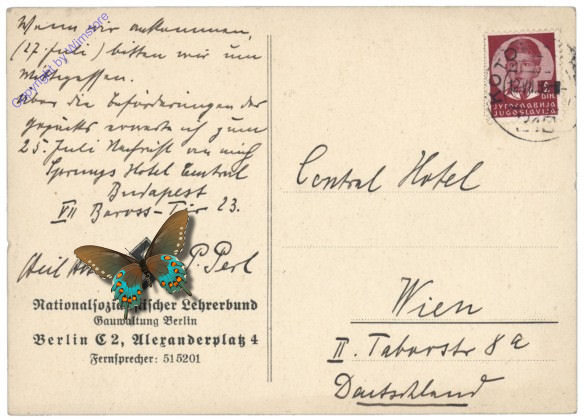 Wenn wir ankommen,
(27. Juli) bitten wir um
Mittagessen.
Über die Beförderungen des
Gepäcks erwarte ich zum
25. Juli Nachricht an mich
Hotel Central
Budapest
VII Baross-Tér 23.
Heil P. Perl
Nationalsozia ischer Lehrerbund
Gauwaltung Berlin
Berlin C 2, Alexanderplatz 4
Fernsprecher: 515201
Copyright by Wimstore
ЈУГОСЛАВИЈА
JUGOSLAVIJA
Central Hotel
Wien
II. Taborstr 8a
Deutschland